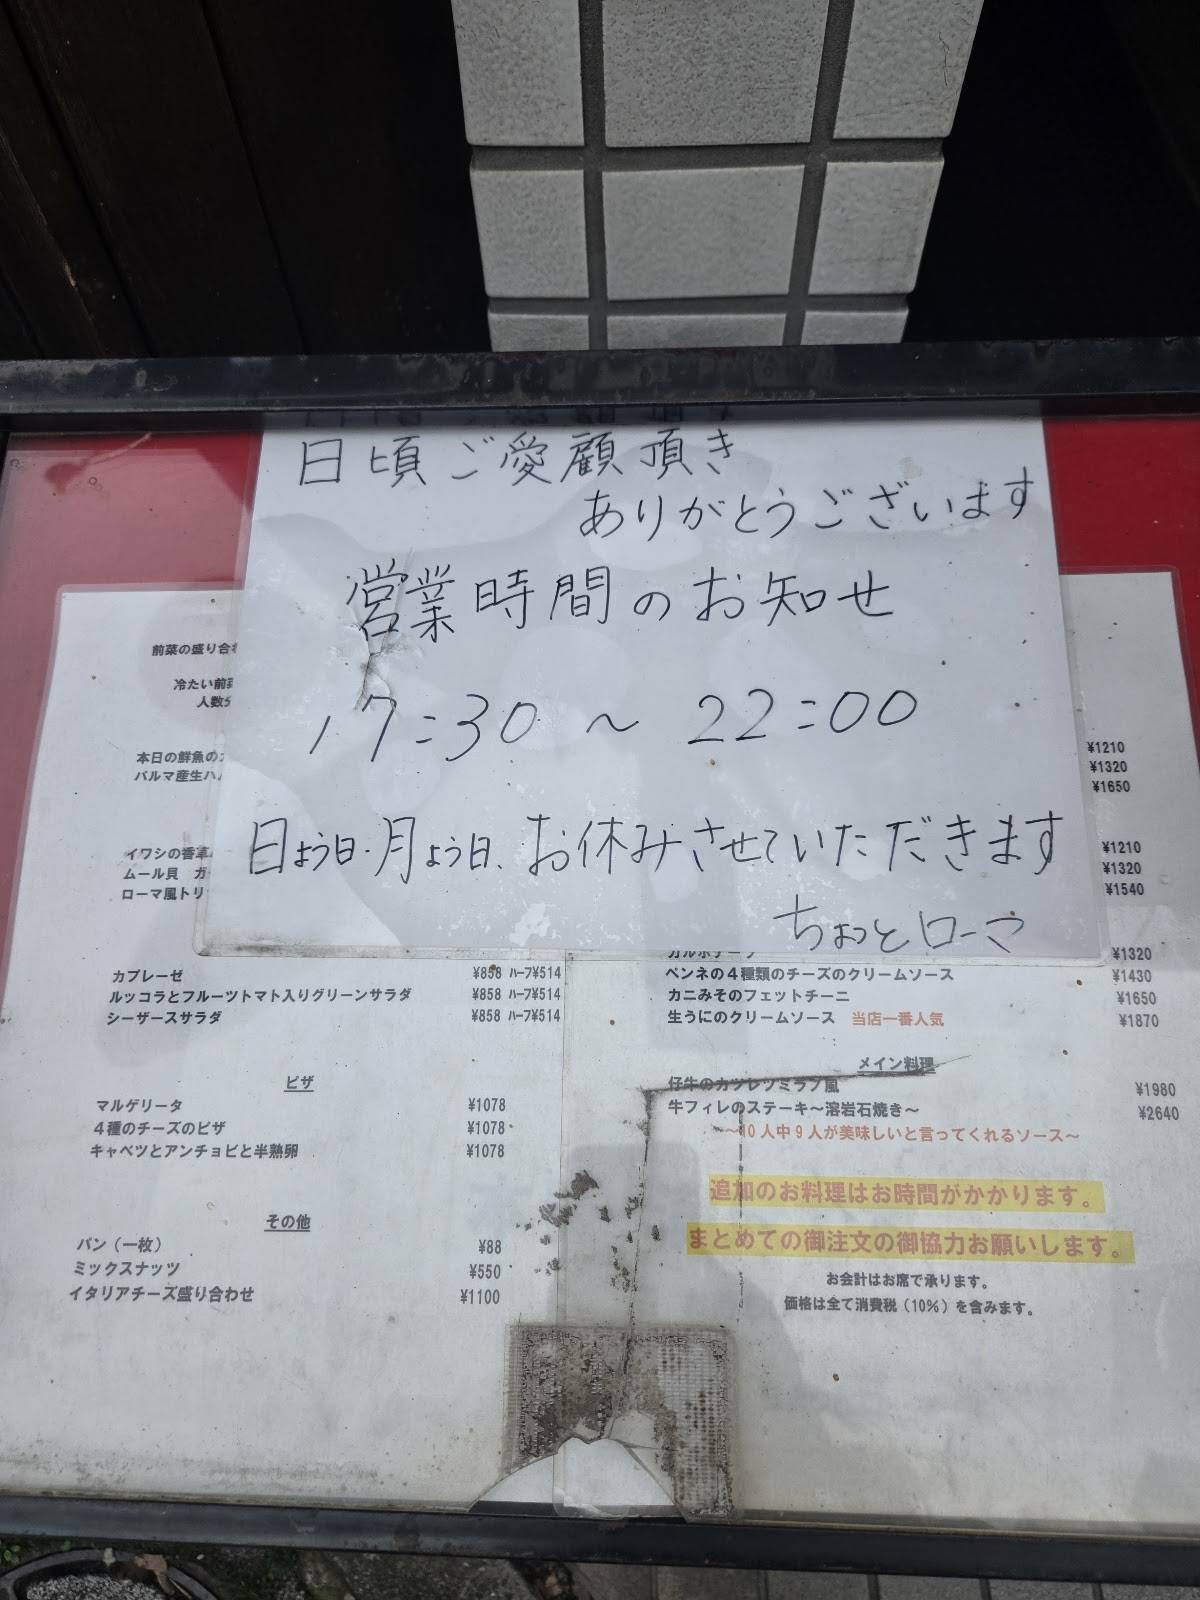 日頃ご愛顧頂き
ありがとうございます
営業時間のお知せ
17:30 ~ 22:00
日よう日・月よう日、お休みさせていただきます
ちょっとローマ
前菜の盛り合わ
冷たい前菜
人数分
本日の鮮魚のカ
パルマ産生ハム
イワシの香草
ムール貝 ガ
ローマ風トリッ
カプレーゼ ¥858 ハーフ¥514
ルッコラとフルーツトマト入りグリーンサラダ ¥858 ハーフ¥514
シーザースサラダ ¥858 ハーフ¥514
ピザ
マルゲリータ ¥1078
4種のチーズのピザ ¥1078
キャベツとアンチョビと半熟卵 ¥1078
その他
パン(一枚) ¥88
ミックスナッツ ¥550
イタリアチーズ盛り合わせ ¥1100
¥1210
¥1320
¥1650
¥1210
¥1320
¥1540
カルボナーラ ¥1320
ペンネの4種類のチーズのクリームソース ¥1430
カニみそのフェットチーニ ¥1650
生うにのクリームソース 当店一番人気 ¥1870
メイン料理
仔牛のカツレツミラノ風 ¥1980
牛フィレのステーキ～溶岩石焼き～ ¥2640
～10人中9人が美味しいと言ってくれるソース～
追加のお料理はお時間がかかります。
まとめての御注文の御協力お願いします。
お会計はお席で承ります。
価格は全て消費税(10%)を含みます。